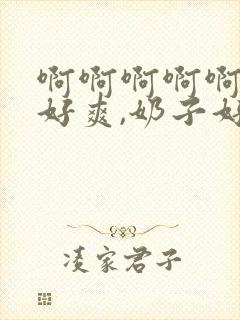 啊啊啊啊啊
好爽,奶子好
凌家君子